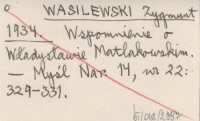 o WASILEWSKI Zygmunt
1934. Wspomnienie o
Władysławie Matlakowskim.
— Myśl Nar. 14, nr 22:
329-331.